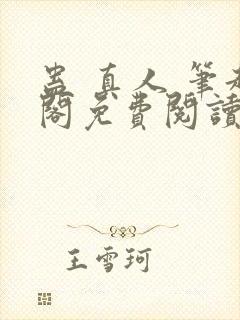 蛊真人 筆
閣免費閱讀
王雪珂